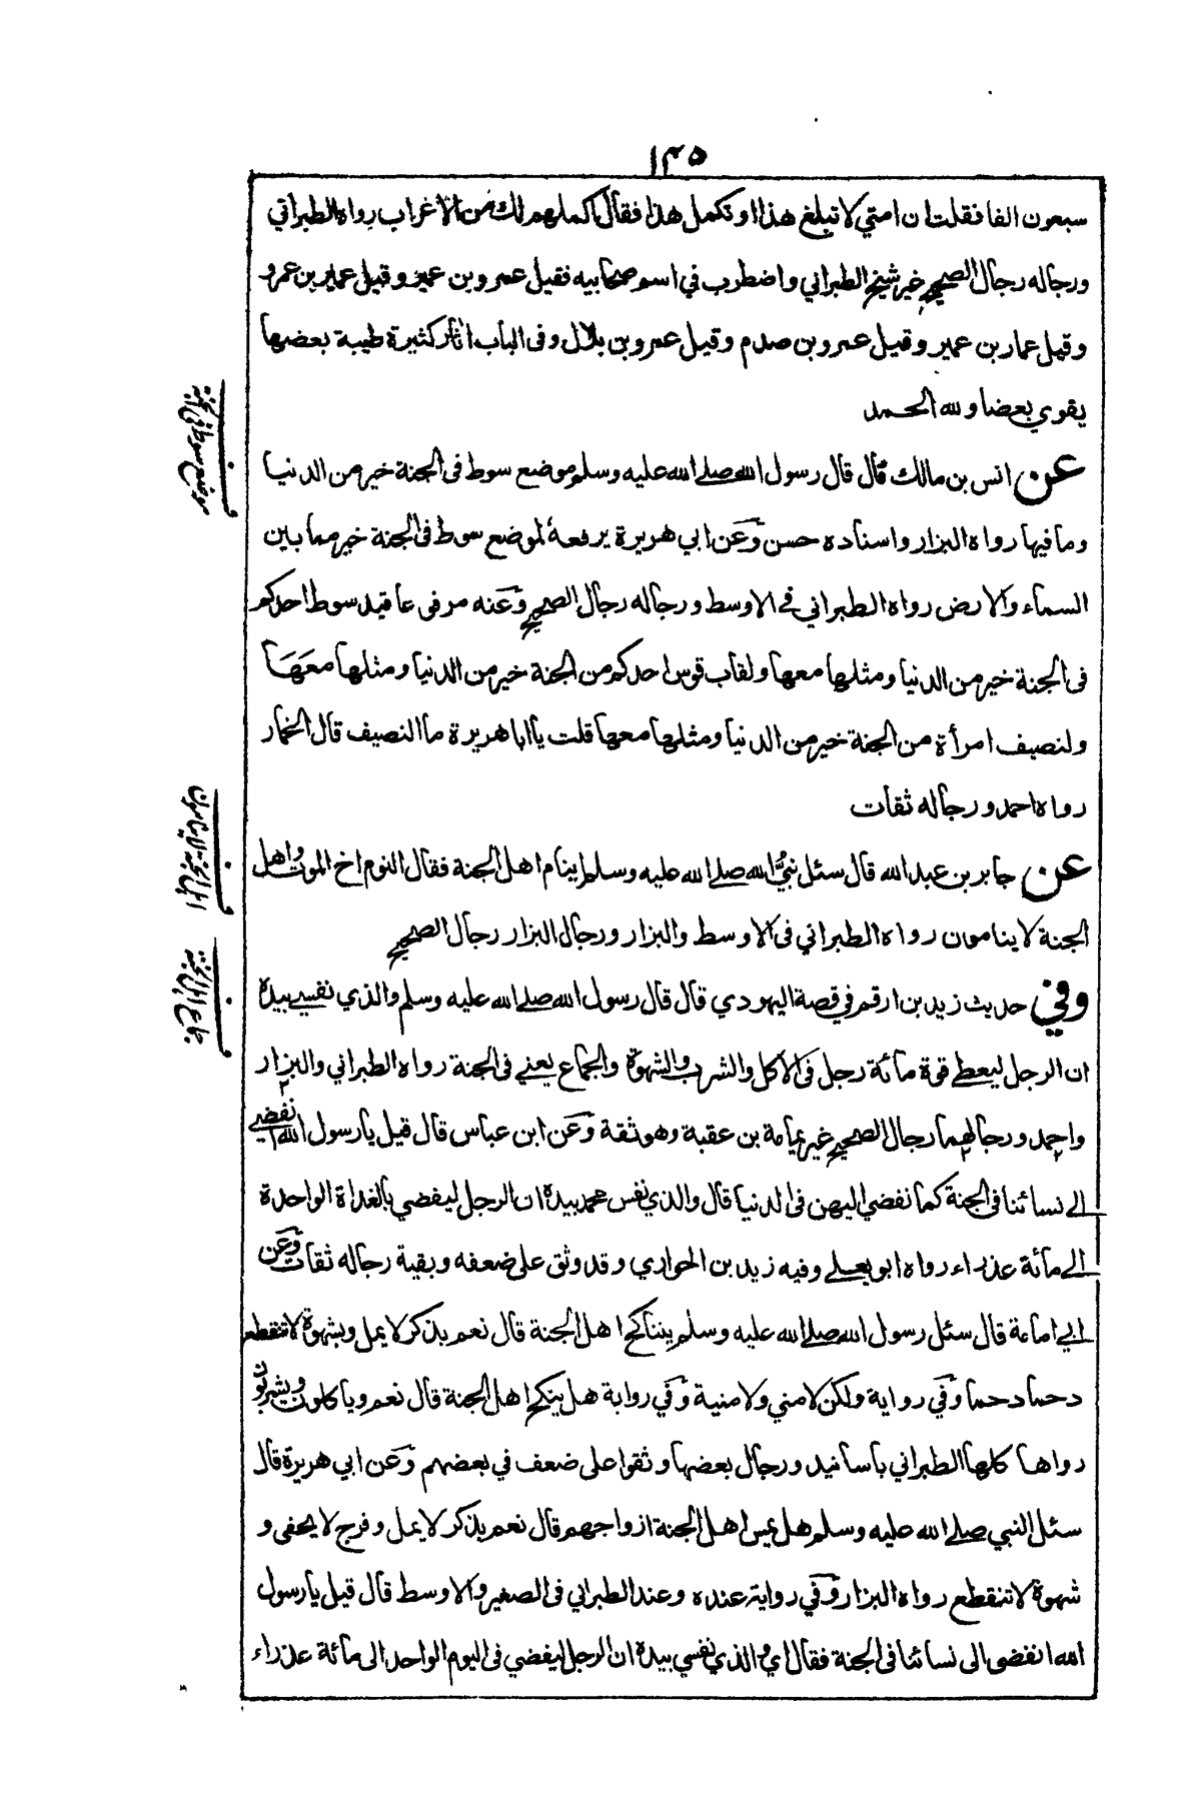 ١٣٥
سبعون الفا فقلت ان امتي لا تبلغ هذا او تكمل هذا فقال اكملهم لك من الاغراب رواه الطبراني
ورجاله رجال الصحيح غير شيخ الطبراني واضطرب في اسم صحابيه فقيل عمرو بن عمير وقيل عمير بن عمرو
وقيل عمار بن عمير وقيل عمرو بن صدم وقيل عمرو بن بلال وفى الباب اثار كثيرة طيبة بعضها
يقوي بعضا ولله الحمد
فـ موضع سوط في الجنة
عن انس بن مالك قال قال رسول الله صلے الله عليه وسلم موضع سوط فى الجنة خير من الدنيا
وما فيها رواه البزار واسناده حسن وعن ابي هريرة يرفعه لموضع سوط فى الجنة خير مما بين
السماء والارض رواه الطبراني فے الاوسط ورجاله رجال الصحيح وعنه مرفوعا قيد سوط احدكم
فى الجنة خير من الدنيا ومثلها معها ولقاب قوس احدكم من الجنة خير من الدنيا ومثلها معها
ولنصيف امرأة من الجنة خير من الدنيا ومثلها معها قلت يا ابا هريرة ما النصيف قال الخمار
رواه احمد ورجاله ثقات
فـ اهل الجنة لا ينامون
عن جابر بن عبد الله قال سئل نبي الله صلے الله عليه وسلم اينام اهل الجنة فقال النوم اخ الموت واهل
الجنة لا ينامون رواه الطبراني فى الاوسط والبزار ورجال البزار رجال الصحيح
فـ جماع اهل الجنة
وفي حديث زيد بن ارقم في قصة اليهودي قال قال رسول الله صلے الله عليه وسلم والذي نفسے بيده
ان الرجل ليعطے قوة مائة رجل فى الاكل والشرب والشهوة والجماع يعنے فى الجنة رواه الطبراني والبزار
واحمد ورجالهما رجال الصحيح غير ثمامة بن عقبة وهو ثقة وعن ابن عباس قال قيل يا رسول الله انفضے
الے نسائنا فى الجنة كما نفضي اليهن فى الدنيا قال والذي نفس محمد بيده ان الرجل ليفضي بالغداة الواحدة
الے مائة عذراء رواه ابو يعلے وفيه زيد بن الحواري وقد وثق على ضعفه وبقية رجاله ثقات وعن
ابے امامة قال سئل رسول الله صلے الله عليه وسلم يتناكح اهل الجنة قال نعم بذكر لا يمل وشهوة لا تنقطع
دحما دحما وفي رواية ولكن لا مني ولا منية وفي رواية هل ينكح اهل الجنة قال نعم وياكلون ويشربون
رواها كلها الطبراني باسانيد ورجال بعضها وثقوا على ضعف في بعضهم وعن ابي هريرة قال
سئل النبي صلے الله عليه وسلم هل يمس اهل الجنة ازواجهم قال نعم بذكر لا يمل وفرج لا يحفى و
شهوة لا تنقطع رواه البزار وفي رواية عنده وعند الطبراني فى الصغير والاوسط قال قيل يا رسول
الله انفضى الى نسائنا فى الجنة فقال اي والذي نفسي بيده ان الرجل ليفضي فى اليوم الواحد الى مائة عذراء